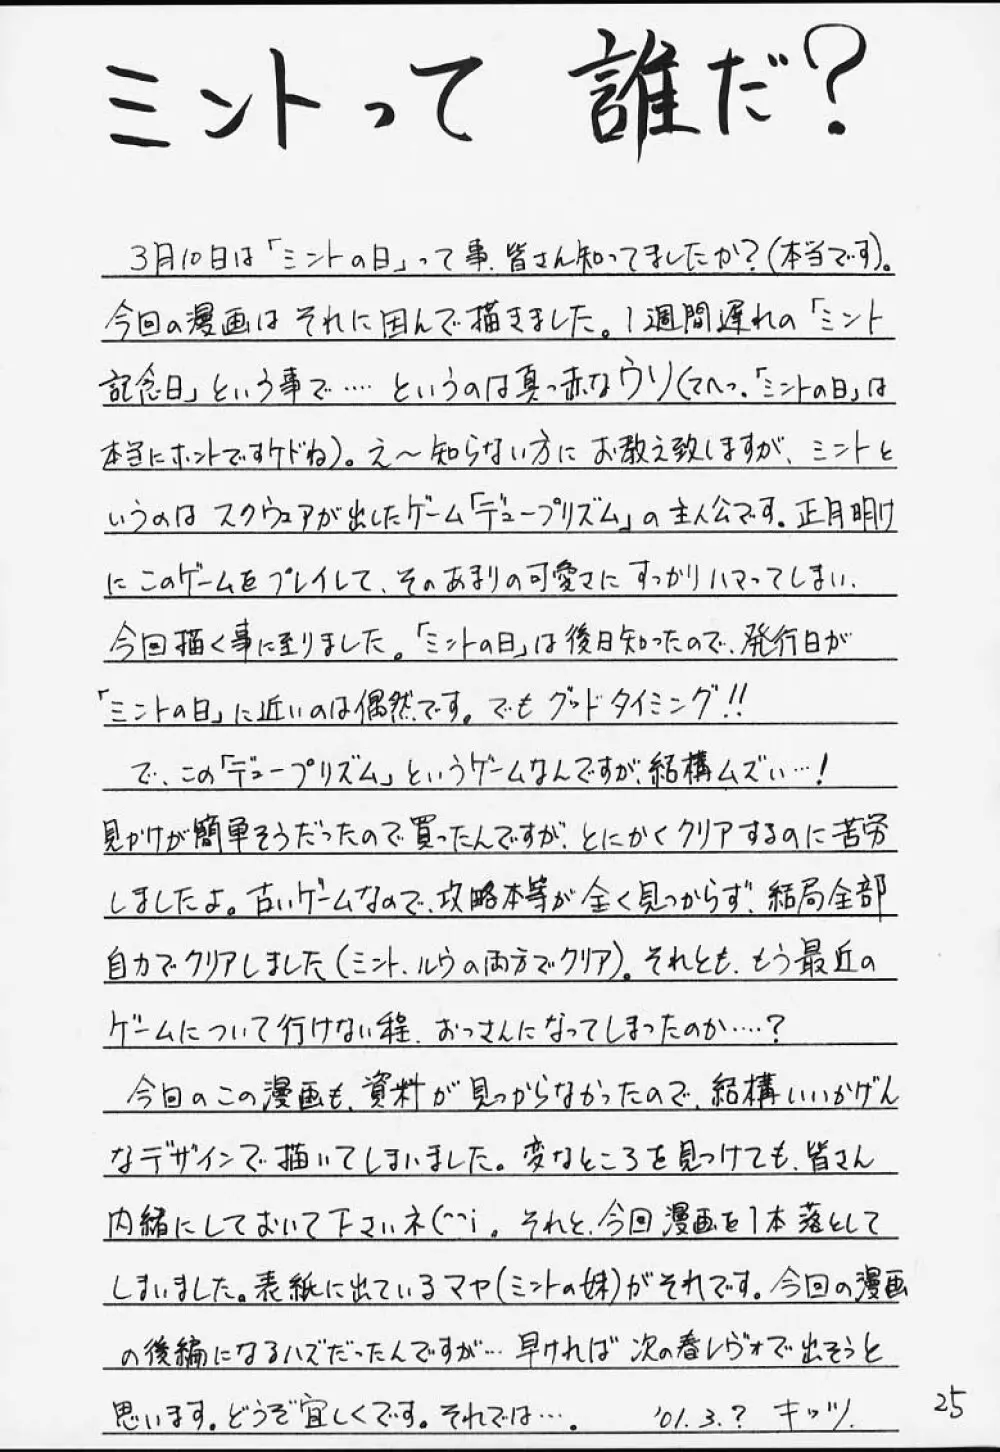 ミントって 誰だ?
3月10日は「ミントの日」って事、皆さん知ってましたか?(本当です)。
今回の漫画は それに因んで描きました。1週間遅れの「ミント
記念日」という事で‥‥ というのは真っ赤なウソ(てへっ。「ミントの日」は
本当にホントですケドね)。え〜知らない方に お教え致しますが、ミントと
いうのは スクウェアが出したゲーム「デュープリズム」の主人公です。正月明け
に このゲームをプレイして、そのあまりの可愛さに すっかりハマってしまい、
今回描く事に至りました。「ミントの日」は後日知ったので、発行日が
「ミントの日」に近いのは偶然です。でも グッドタイミング!!
で、この「デュープリズム」というゲームなんですが、結構ムズい…!
見かけが簡単そうだったので買ったんですが、とにかくクリアするのに苦労
しましたよ。古いゲームなので、攻略本等が全く見つからず、結局全部
自力でクリアしました(ミント、ルウの両方でクリア)。それとも、もう最近の
ゲームについて行けない程、おっさんになってしまったのか‥‥?
今回のこの漫画も、資料が見つからなかったので、結構いいかげん
なデザインで描いてしまいました。変なところを見つけても、皆さん
内緒にしておいて下さいネ(^^;。それと、今回漫画を1本落として
しまいました。表紙に出ているマヤ(ミントの妹)がそれです。今回の漫画
の後編になるハズだったんですが… 早ければ 次の春レヴォで出そうと
思います。どうぞ宜しくです。それでは…。 '01.3.? キッツ.
25